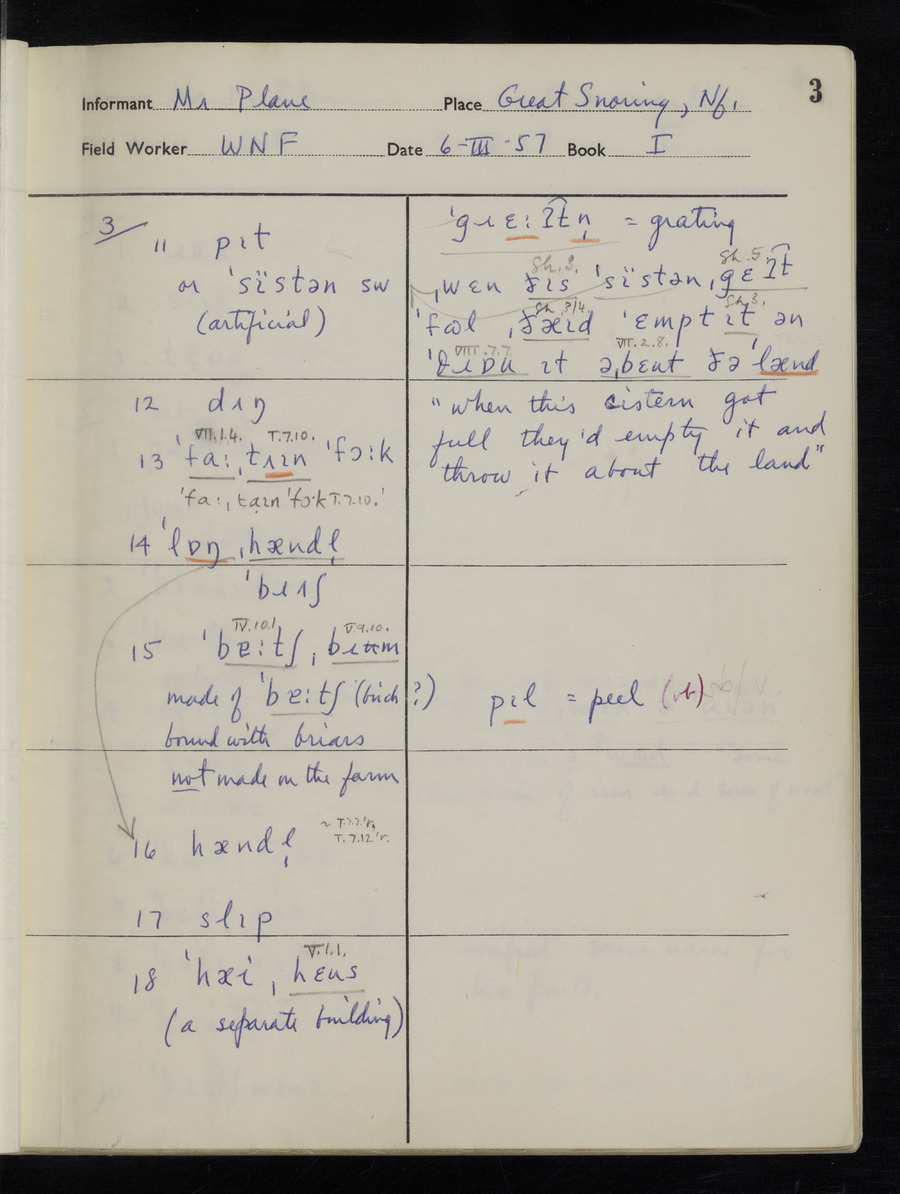 3
Informant Mr Plane Place Great Snoring, Nf.
Field Worker WNF Date 6-III-57 Book I
3/
11 pɪt
or ˈsïstən sw
(artificial)
12 dɪŋ
VII.1.4. I.7.10.
13 ˈfaː, tɹɪn ˈfɔːk
I.7.10.
14 ˈlɒŋ ˌhændl̩
ˈbɹɪʃ
IV.10.1 V.9.10.
15 ˈbɐːtʃ ˌbɹʉm
made of ˈbɐːtʃ (birch?)
bound with briars
not made on the farm
16 hændl̩
17 slɪp
V.1.1.
18 ˈhæi ˌhɛus
(a separate building)
= grating
Sh.3. Sh.5.
ˌwɛn ðɪs ˈsïstən ˌgɛʔt
Sh.3/4. Sh.3.
ˈfʊl ˌðæɪd ˈɛmpt ɪt ən
VIII.7.7. VII.2.8.
ɪt əˌbɛut ðə ˈlænd
"when this cistern got
full they'd empty it and
throw it about the land"
pɪl = peel (vb)